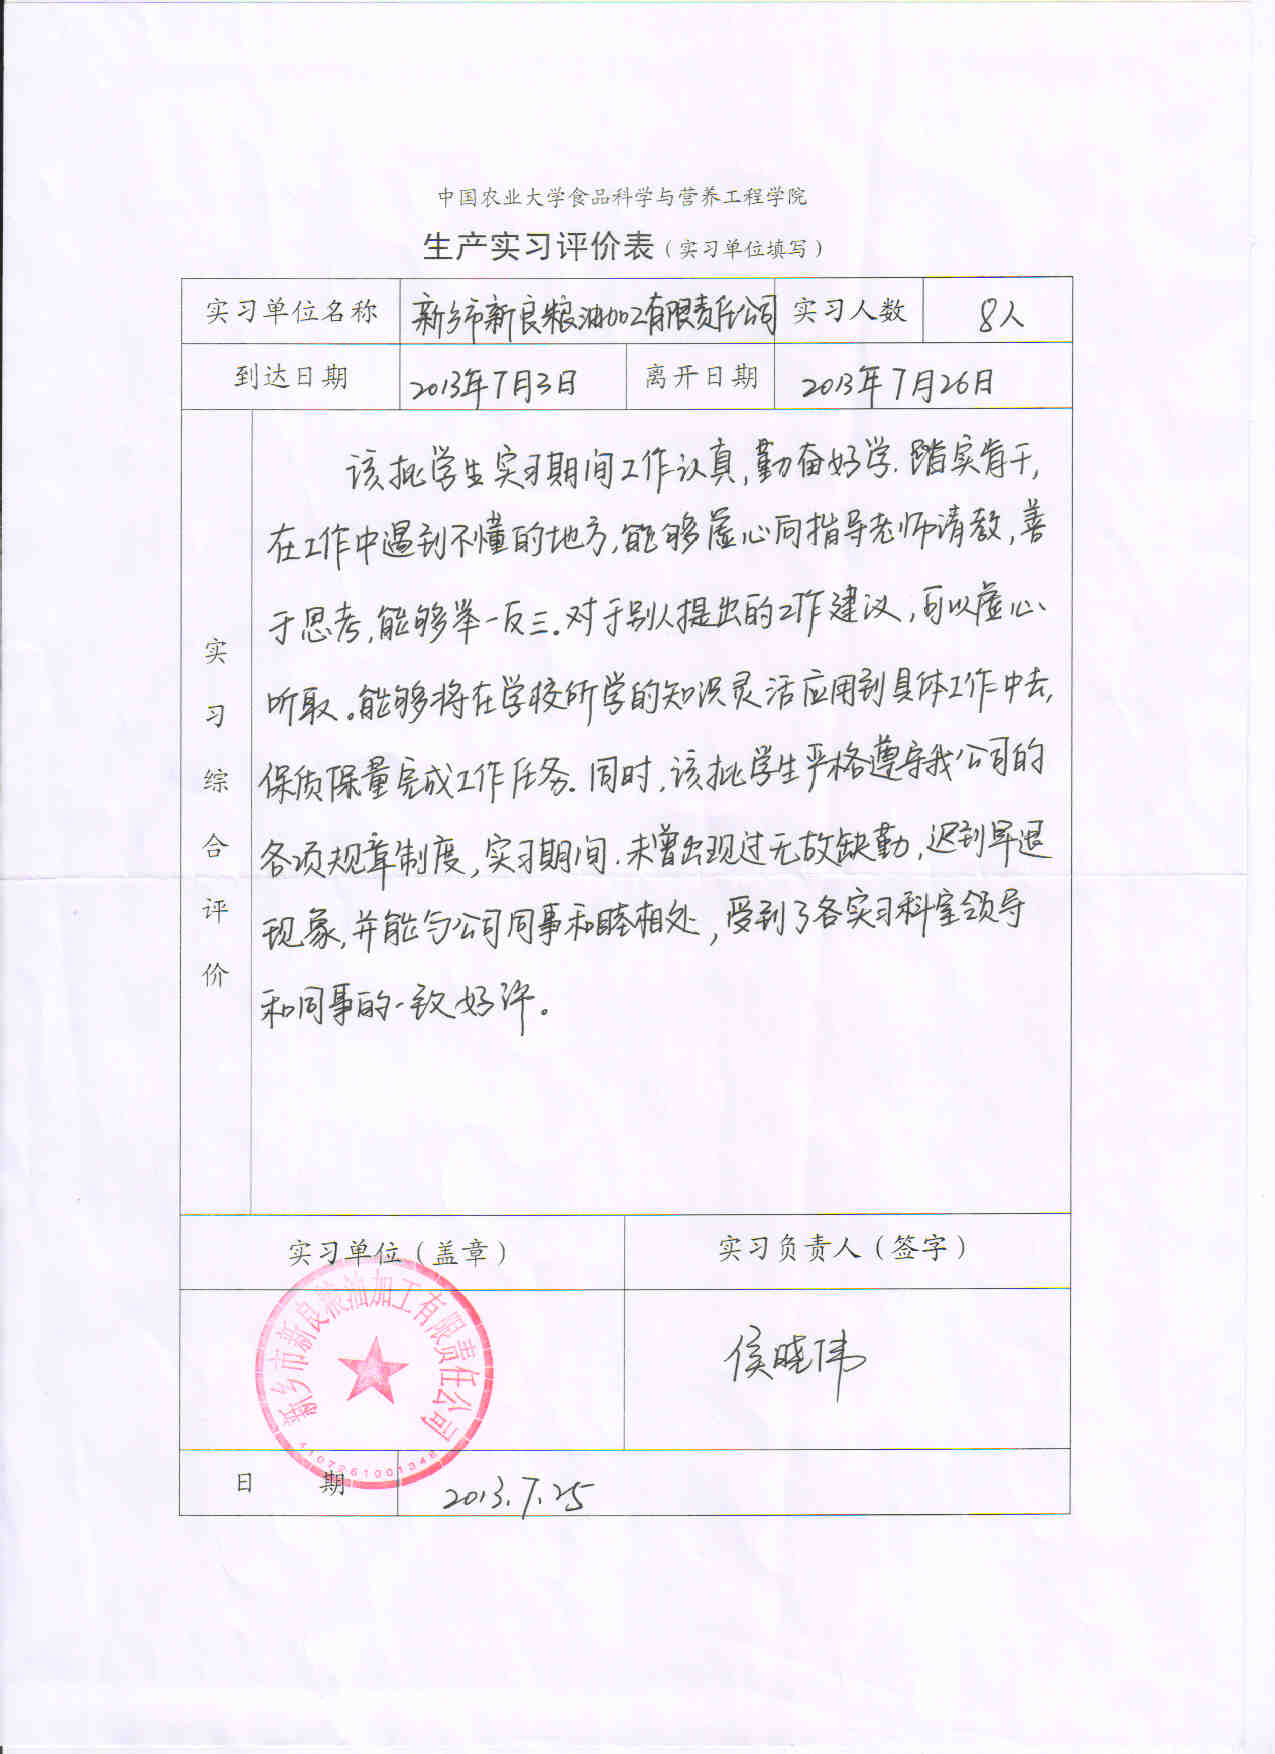 中国农业大学食品科学与营养工程学院
生产实习评价表（实习单位填写）
实习单位名称 新乡市新良粮油加工有限责任公司 实习人数 8人
到达日期 2013年7月3日 离开日期 2013年7月26日
实习综合评价
该批学生实习期间工作认真,勤奋好学.踏实肯干,
在工作中遇到不懂的地方,能够虚心向指导老师请教,善
于思考,能够举一反三。对于别人提出的工作建议,可以虚心
听取。能够将在学校所学的知识灵活应用到具体工作中去,
保质保量完成工作任务.同时,该批学生严格遵守我公司的
各项规章制度,实习期间.未曾出现过无故缺勤,迟到早退
现象,并能与公司同事和睦相处,受到了各实习科室领导
和同事的一致好评。
实习单位（盖章） 实习负责人（签字）
新乡市新良粮油加工有限责任公司
4107261001348
侯晓伟
日 期 2013.7.25